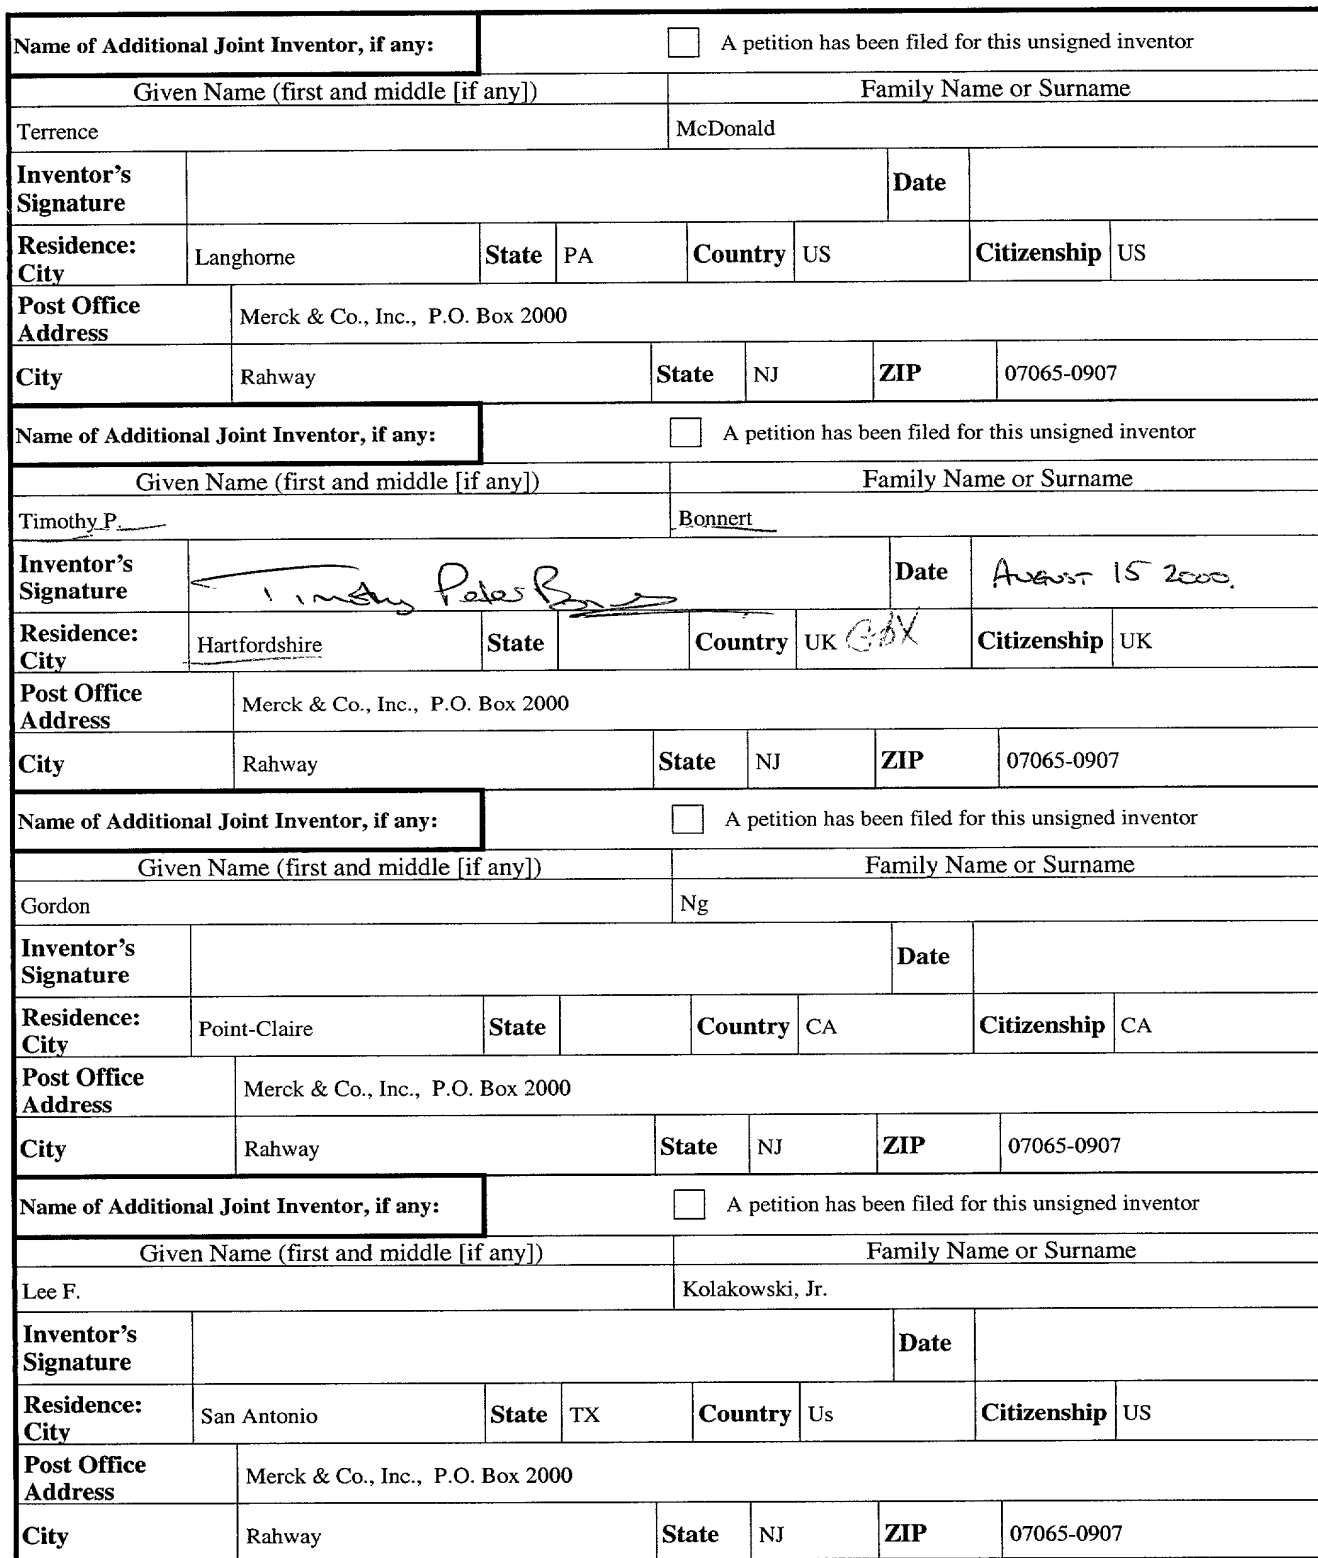 Name of Additional Joint Inventor, if any: A petition has been filed for this unsigned inventor
Given Name (first and middle [if any]) Family Name or Surname
Terrence McDonald
Inventor's Signature Date
Residence: City Langhorne State PA Country US Citizenship US
Post Office Address Merck & Co., Inc., P.O. Box 2000
City Rahway State NJ ZIP 07065-0907
Name of Additional Joint Inventor, if any: A petition has been filed for this unsigned inventor
Given Name (first and middle [if any]) Family Name or Surname
Timothy P. Bonnert
Inventor's Signature Timothy Peter Date August 15 2000.
Residence: City Hartfordshire State Country UK GBX Citizenship UK
Post Office Address Merck & Co., Inc., P.O. Box 2000
City Rahway State NJ ZIP 07065-0907
Name of Additional Joint Inventor, if any: A petition has been filed for this unsigned inventor
Given Name (first and middle [if any]) Family Name or Surname
Gordon Ng
Inventor's Signature Date
Residence: City Point-Claire State Country CA Citizenship CA
Post Office Address Merck & Co., Inc., P.O. Box 2000
City Rahway State NJ ZIP 07065-0907
Name of Additional Joint Inventor, if any: A petition has been filed for this unsigned inventor
Given Name (first and middle [if any]) Family Name or Surname
Lee F. Kolakowski, Jr.
Inventor's Signature Date
Residence: City San Antonio State TX Country Us Citizenship US
Post Office Address Merck & Co., Inc., P.O. Box 2000
City Rahway State NJ ZIP 07065-0907